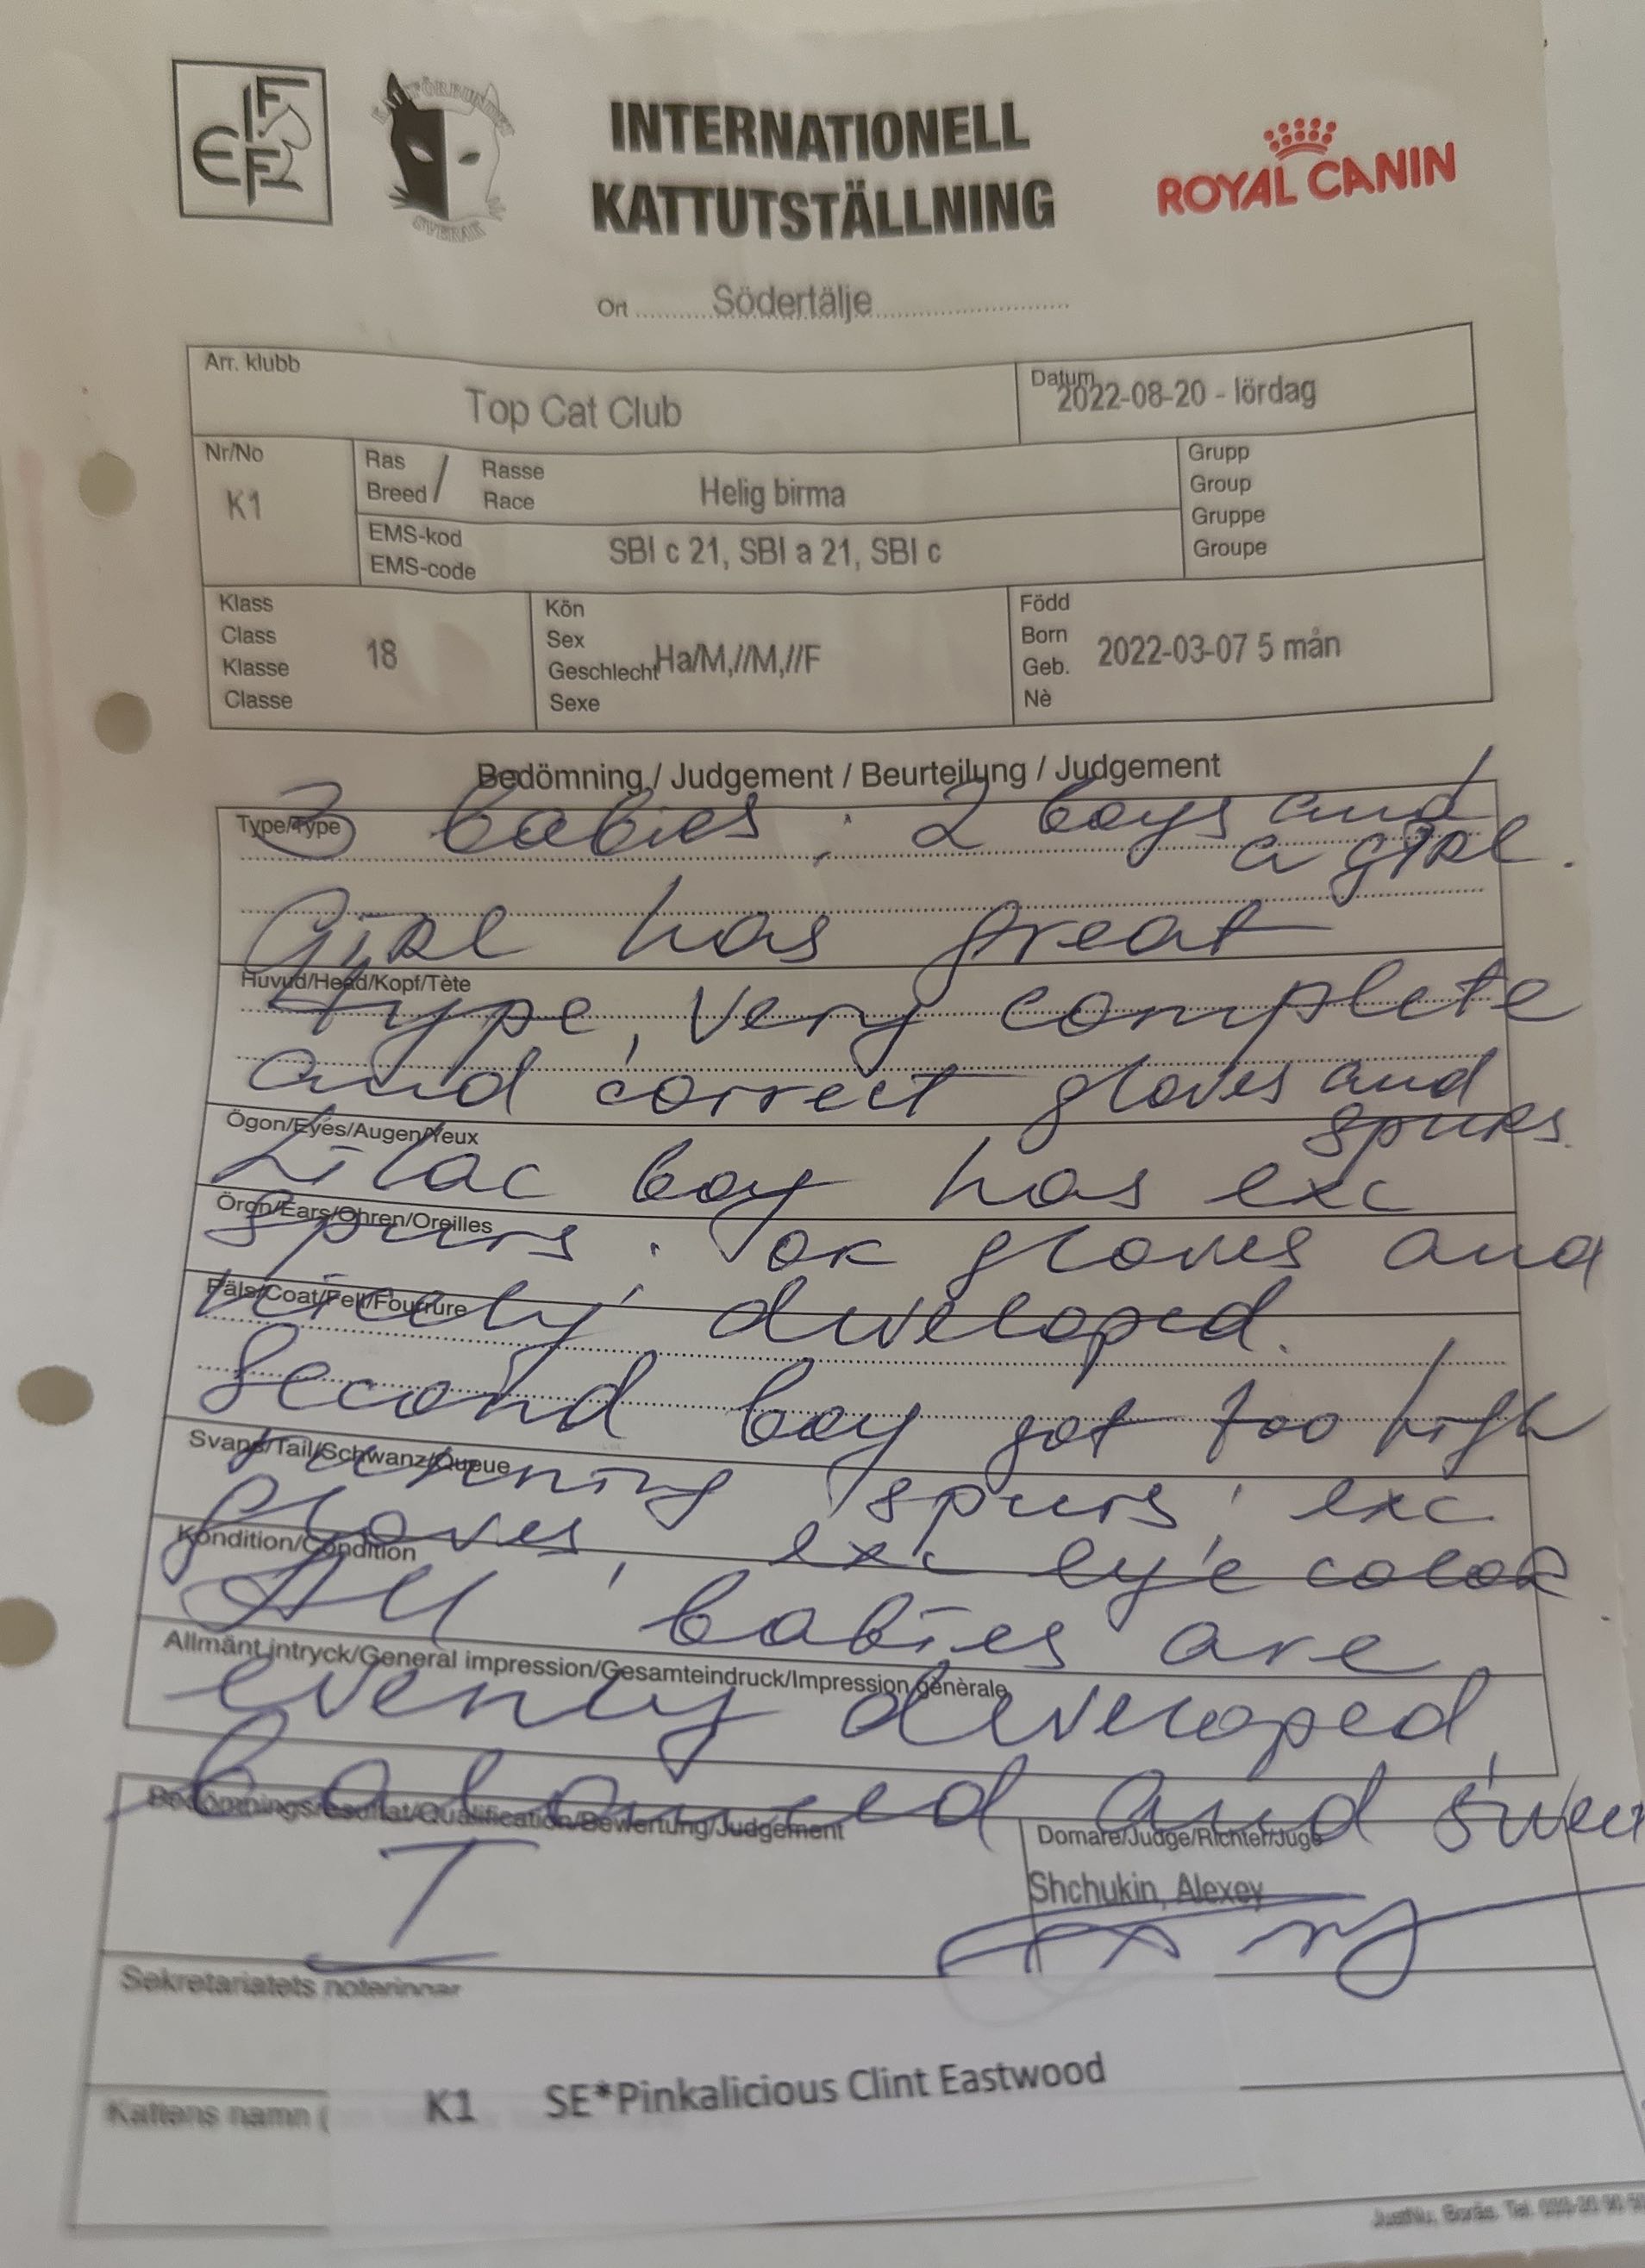 FIFE
INTERNATIONELL
KATTUTSTÄLLNING
SVERAK
ROYAL CANIN
Ort Södertälje
Arr. klubb
Top Cat Club
Datum
2022-08-20 - lördag
Nr/No
K1
Ras Rasse
Breed / Race
Helig birma
EMS-kod
EMS-code
SBI c 21, SBI a 21, SBI c
Grupp
Group
Gruppe
Groupe
Klass
Class
Klasse
Classe
18
Kön
Sex
Geschlecht
Sexe
Ha/M,//M,//F
Född
Born
Geb.
Nè
2022-03-07 5 mån
Bedömning / Judgement / Beurteilung / Judgement
Type/Type
3 babies: 2 boys and
a girl.
Girl has great
Huvud/Head/Kopf/Tète
type, very complete
and correct gloves and
spurs.
Ögon/Eyes/Augen/Yeux
Lilac boy has exc
Öron/Ears/Ohren/Oreilles
spurs. ok gloves and
Päls/Coat/Fell/Fourrure
nicely developed.
Second boy got too high
Svans/Tail/Schwanz/Queue
running spurs, exc
gloves, exc eye color.
Kondition/Condition
All babies are
Allmänt intryck/General impression/Gesamteindruck/Impression gènèrale
evenly developed,
balanced and
Bedömningsresultat/Qualification/Bewertung/Judgement
I
Domare/Judge/Richter/Juge
Shchukin, Alexey
Sekretariatets noteringar
Kattens namn (
K1 SE*Pinkalicious Clint Eastwood